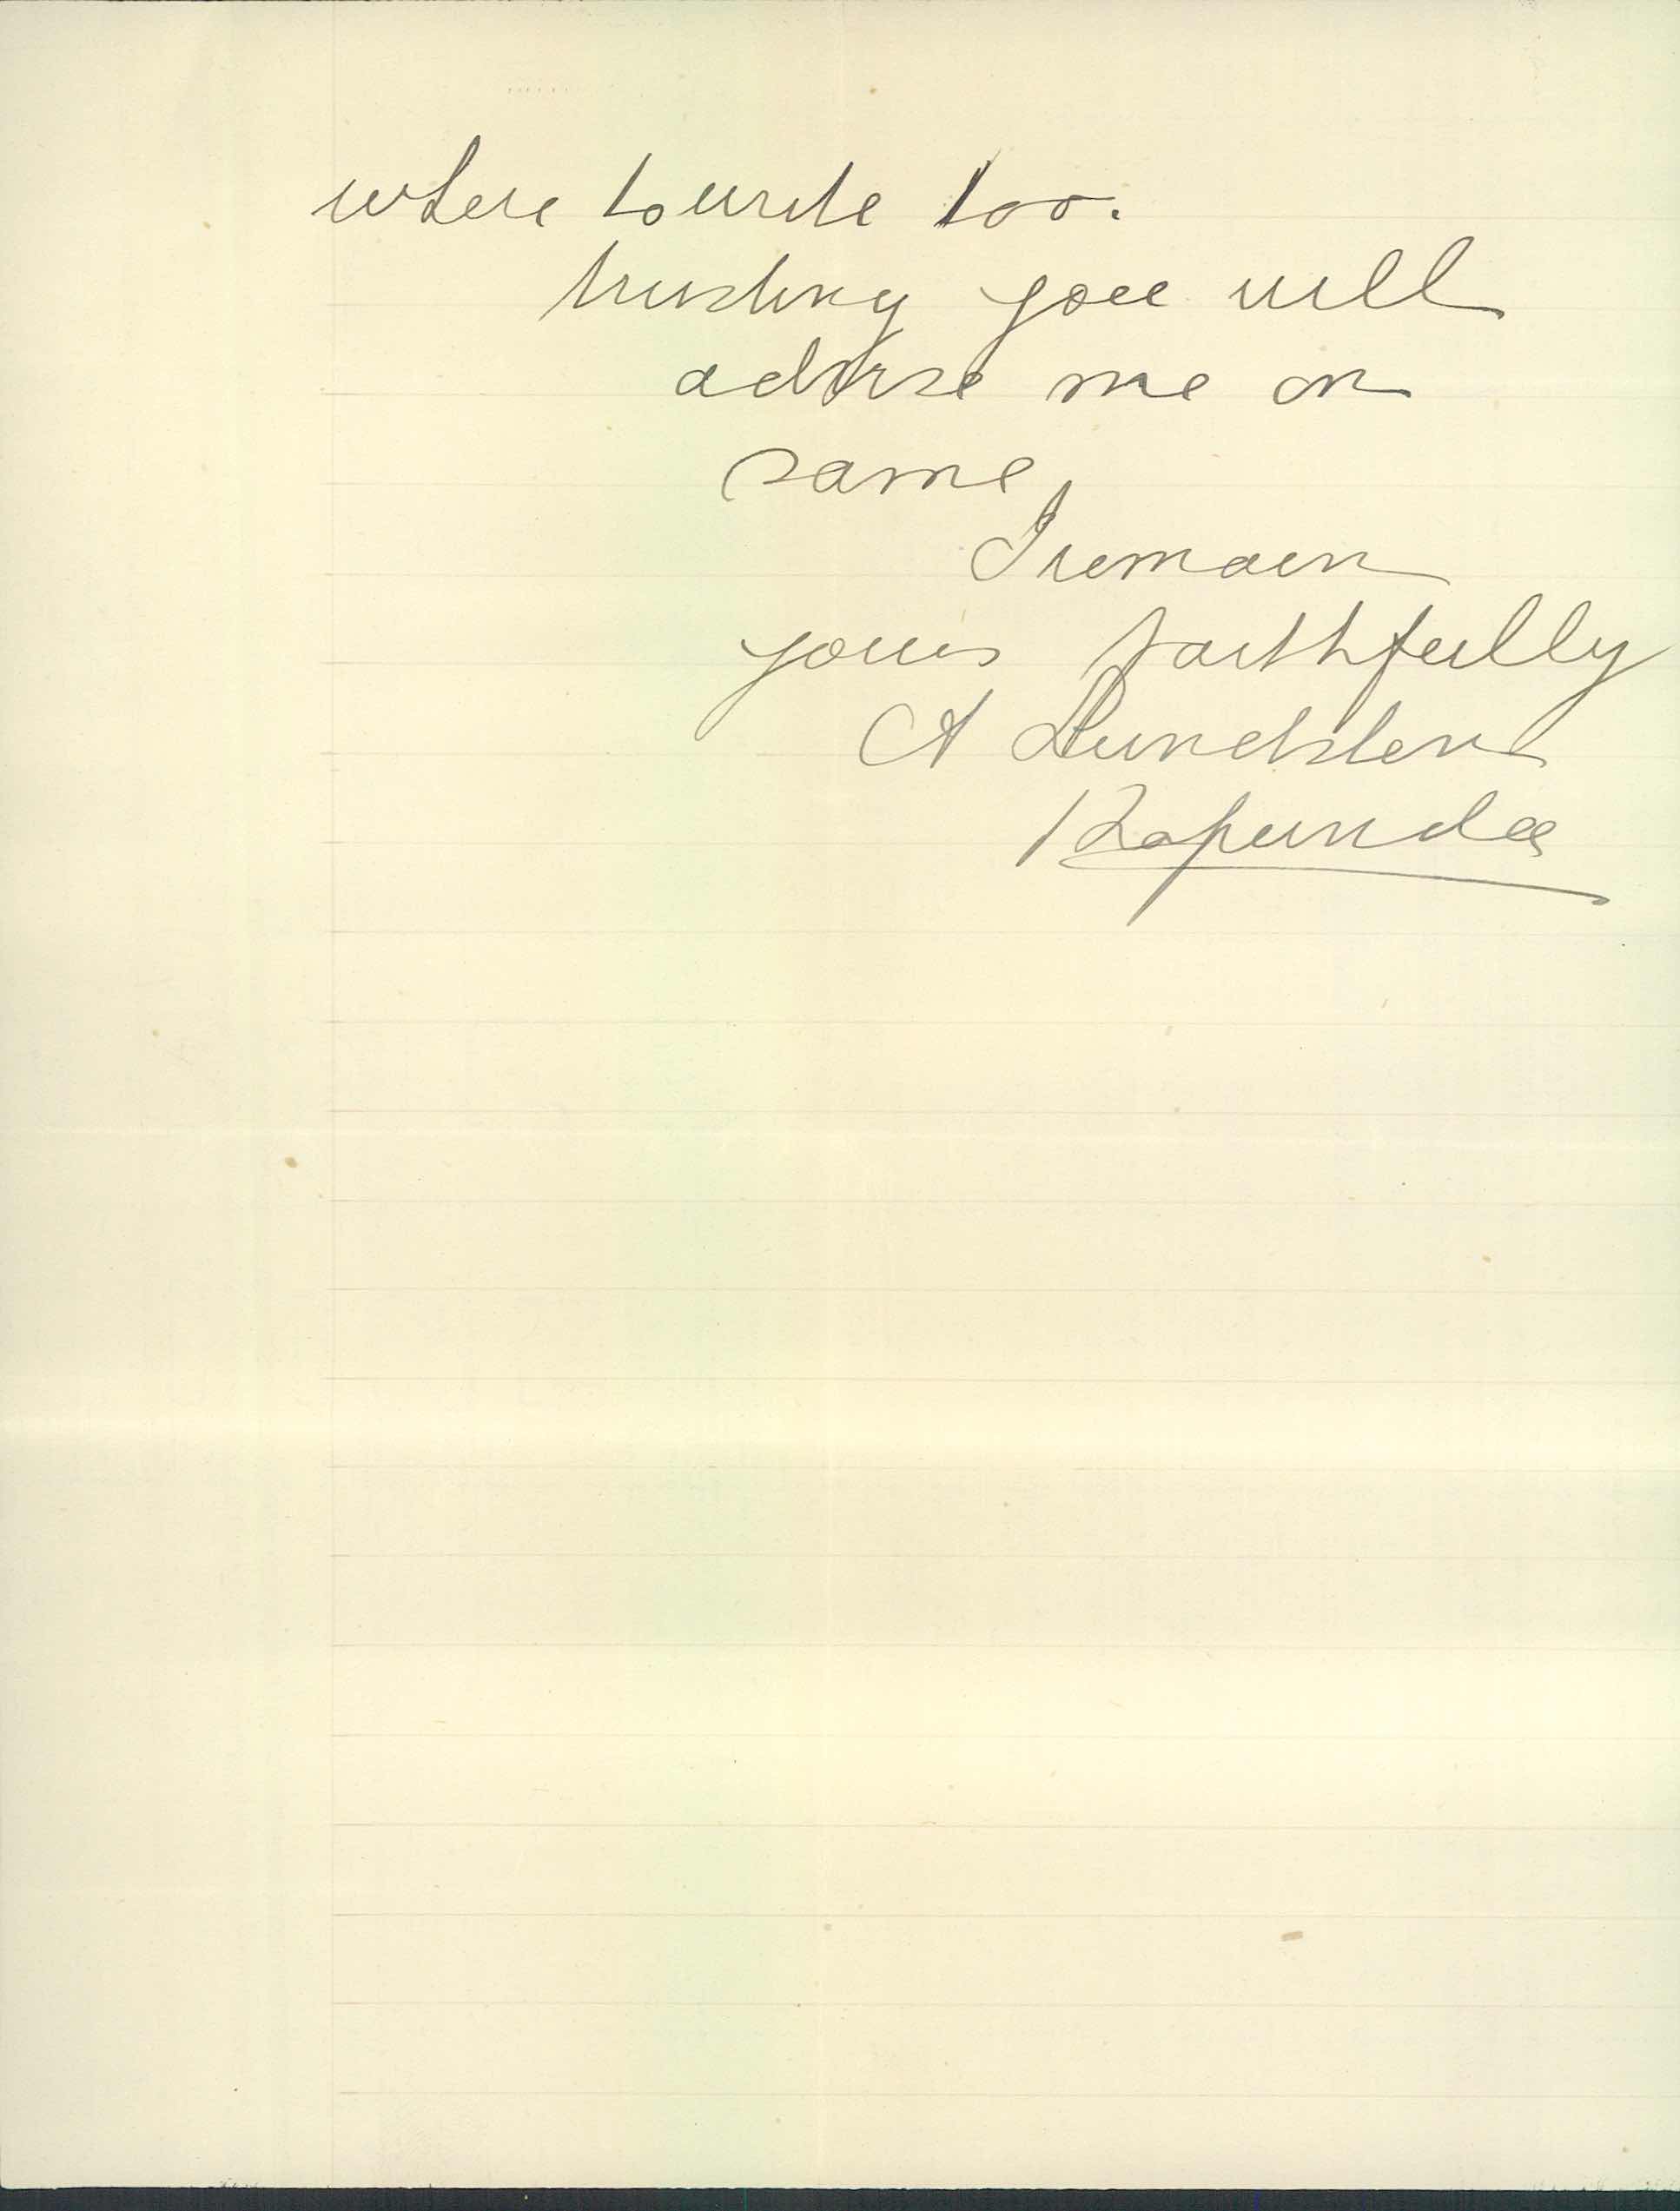 where to write too.
trusting you will
advise me on
same,
I remain
yours faithfully
A Lundsten
Kapunda